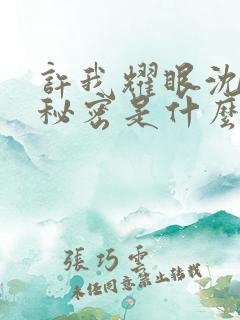 許我耀眼沈
秘密是什麼
張巧雲
未經同意禁止轉載